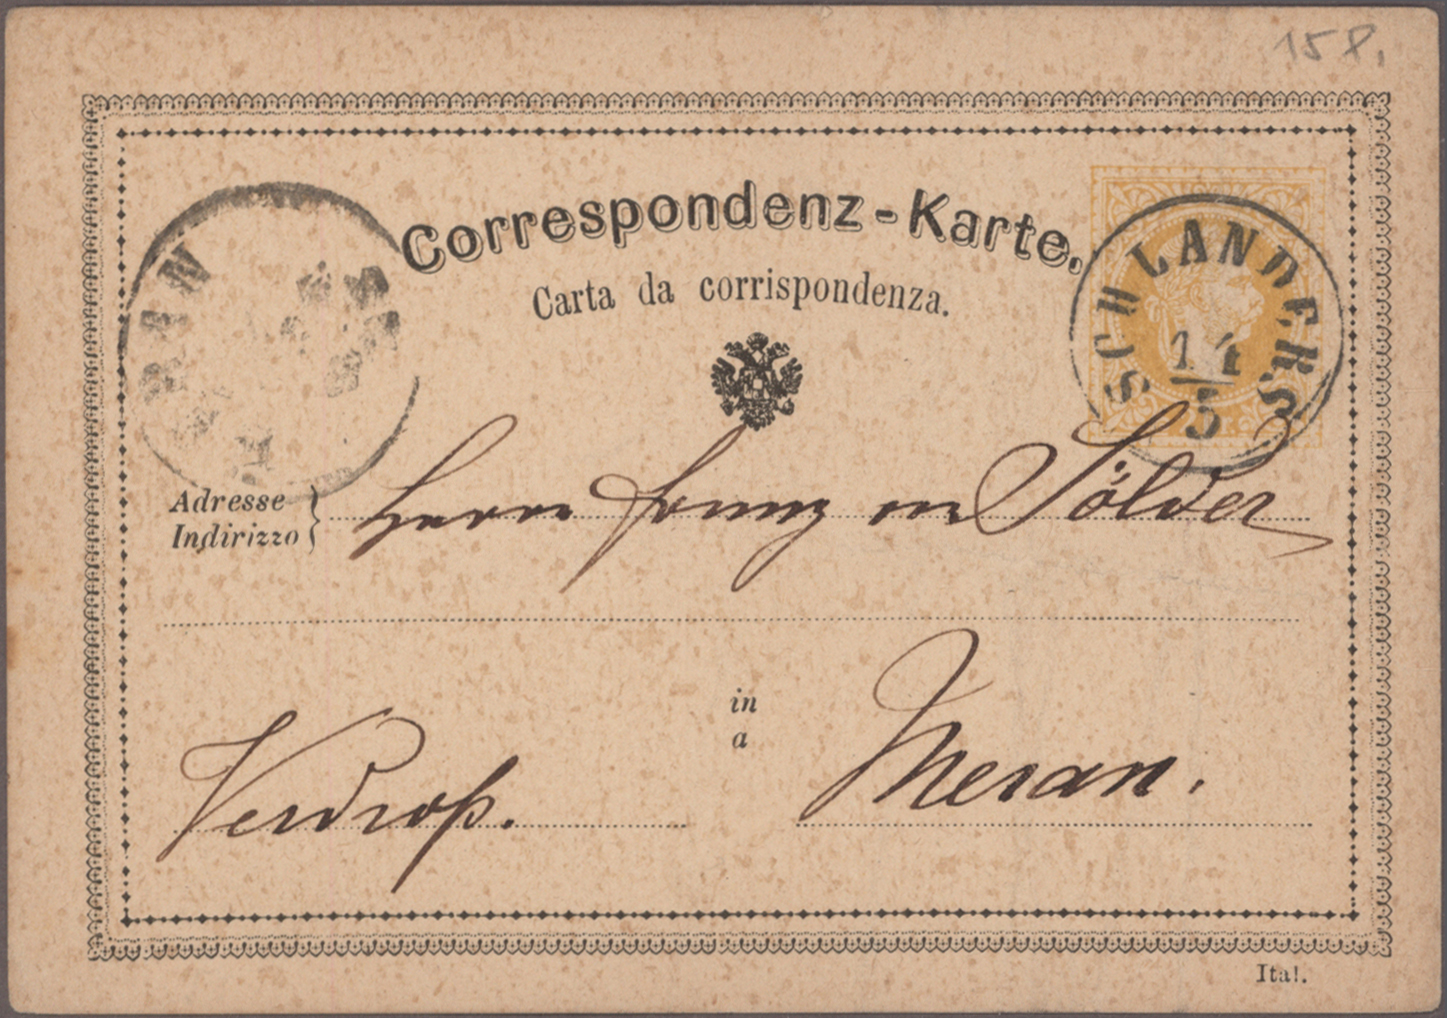 158.
Correspondenz-Karte.
Carta da corrispondenza.
SCHLANDERS
14
5
Adresse
Indirizzo
Herrn Franz von Sölder
in
a
Verdroß.
Meran.
Ital.